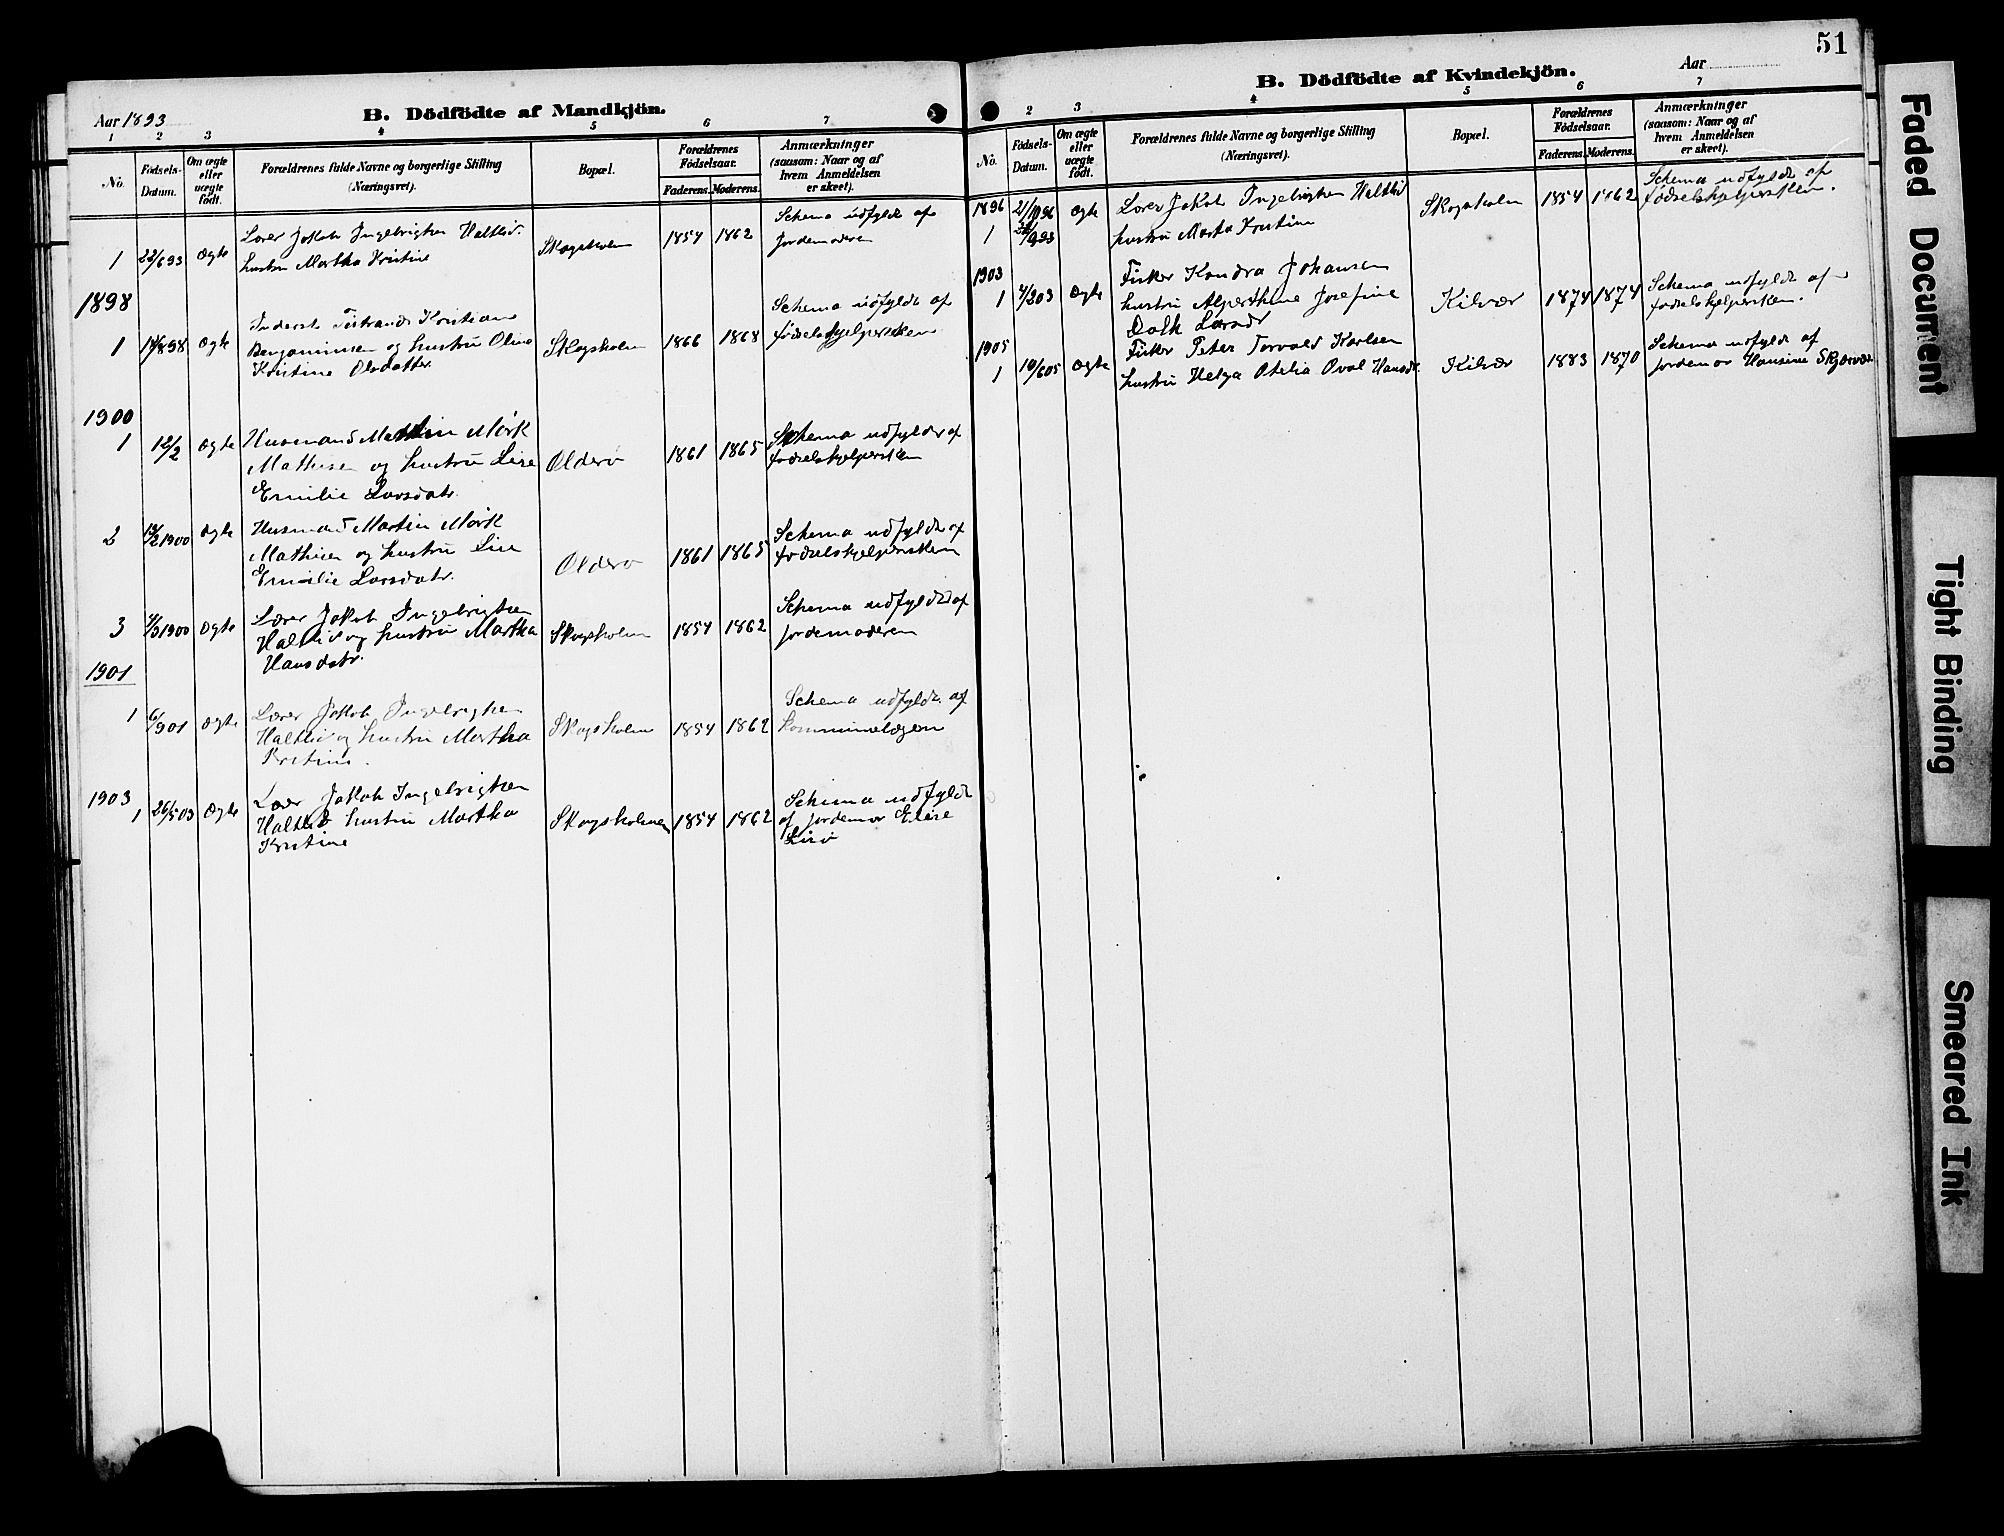 51
Aar 1893
B. Dödfödte af Mandkjön.
1 2 3 4 5 6 7
No.
Födsels-
Datum.
Om ægte
eller
uægte
födt.
Forældrenes fulde Navne og borgerlige Stilling
(Næringsvei).
Bopæl.
Forældrenes
Födselsaar.
Faderens. Moderens.
Anmærkninger
(saasom: Naar og af
hvem Anmeldelsen
er skeet).
1 22/6 93 Ægte
Lærer Jakob Ingebrigtsen Haltlid.
hustru Martha Kristine
Skogsholm 1854 1862
Schema udfyldt af
Jordemoderen
1898
1 898 Ægte
Kristian
Benjaminsen og hustru Oline
Kristine Olsdatter
Skogsholm 1866 1868
Schema udfyldt af
fødselshjelpersken
1900
1 12/2 Ægte
Husmand Martin Mörk
Mathisen og hustru Lise
Emilie Larsdatr.
Olderö 1861 1865
Schema udfyldt af
fødselshjelpersken
2 1900 Ægte
Husmand Martin Mörk
Mathisen og hustru Lise
Emilie Larsdatr.
Olderö 1861 1865
Schema udfyldt af
fødselshjelpersken
3 1900 Ægte
Lærer Jakob Ingebrigtsen
Haltlid og hustru Martha
Hansdatr.
Skogsholm 1854 1862
Schema udfyldt af
jordemoderen
1901
1 6/9 01 Ægte
Lærer Jakob Ingebrigtsen
Haltlid og hustru Martha
Kristine.
Skogsholm 1854 1862
Schema udfyldt af
Kommunelægen
1903
1 26/5 03 Ægte
Lærer Jakob Ingebrigtsen
Haltlid hustru Martha
Kristine
Skogsholmen 1854 1862
Schema udfyldt
af jordemor Elise
B. Dödfödte af Kvindekjön.
Aar
2 3 4 5 6 7
No.
Födsels-
Datum.
Om ægte
eller
uægte
födt.
Forældrenes fulde Navne og borgerlige Stilling
(Næringsvei).
Bopæl.
Forældrenes
Födselsaar.
Faderens. Moderens.
Anmærkninger
(saasom: Naar og af
hvem Anmeldelsen
er skeet).
1896
1 Ægte
Lærer Jakob Ingebrigtsen Haltlid
hustru Marta Kristine
Skogsholm 1854 1862
Schema udfyldt af
fødselshjelpersken.
1903
1 4/2 03 Ægte
Fisker Johansen
hustru Josefine
Larsdr
Kilvær 1874 1874
Schema udfyldt af
fødselshjelpersken.
1905
1 10/6 05 Ægte
Fisker Peter Torvald Karlsen
hustru Helga Otelia Hansdr.
Kilvær 1883 1870
Schema udfyldt af
jordemor Hansine Skjærvær
Faded Document
Tight Binding
Smeared Ink